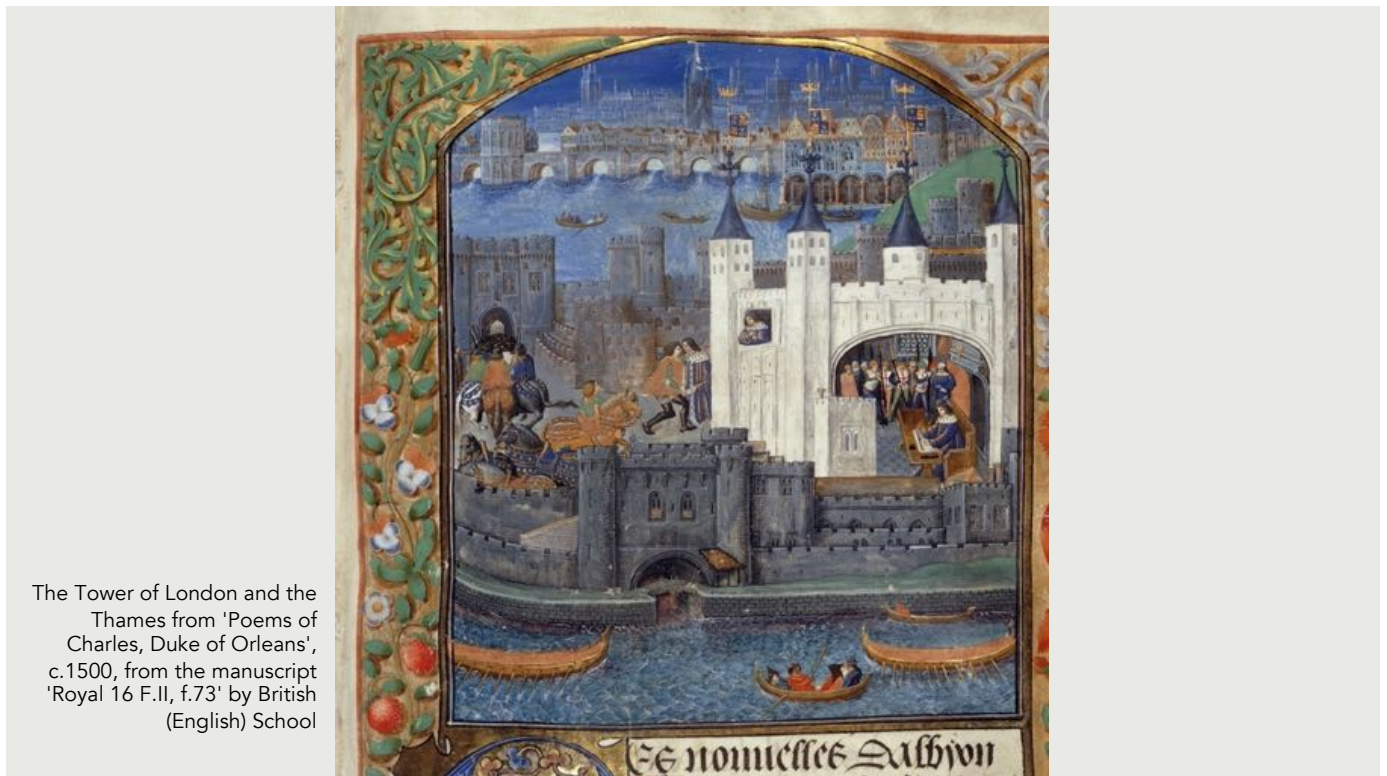 The Tower of London and the
Thames from 'Poems of
Charles, Duke of Orleans',
c.1500, from the manuscript
'Royal 16 F.II, f.73' by British
(English) School
es nouuelles Dalbyon